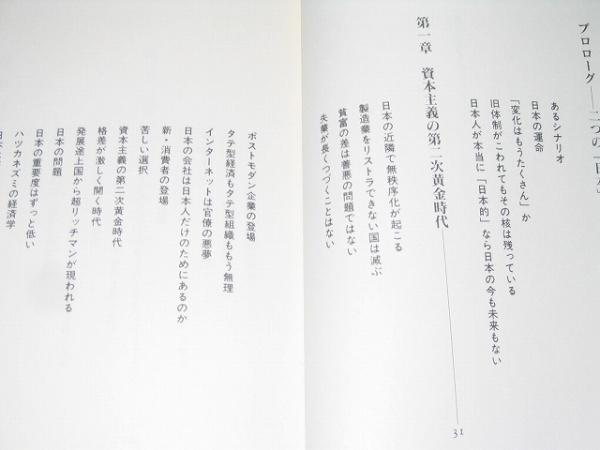 プロローグ──二つの「日本」
あるシナリオ
日本の運命
「変化はもうたくさん」か
旧体制がこわれてもその核は残っている
日本人が本当に「日本的」なら日本の今も未来もない
第一章 資本主義の第二次黄金時代 31
日本の近隣で無秩序化が起こる
製造業をリストラできない国は滅ぶ
貧富の差は善悪の問題ではない
失業が長くつづくことはない
ポストモダン企業の登場
タテ型経済もタテ型組織ももう無理
インターネットは官僚の悪夢
日本の会社は日本人だけのためにあるのか
新・消費者の登場
苦しい選択
資本主義の第二次黄金時代
格差が激しく開く時代
発展途上国から超リッチマンが現われる
日本の問題
日本の重要度はずっと低い
ハツカネズミの経済学